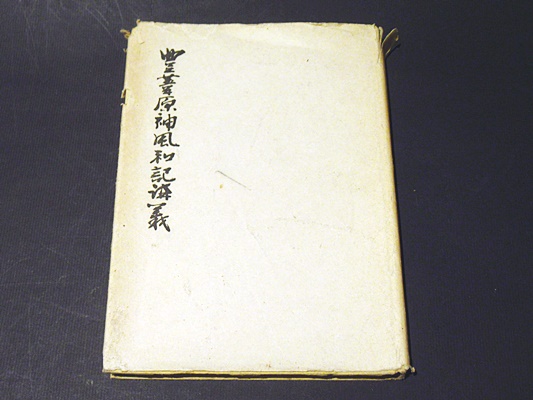 豊葦原神風和記講義